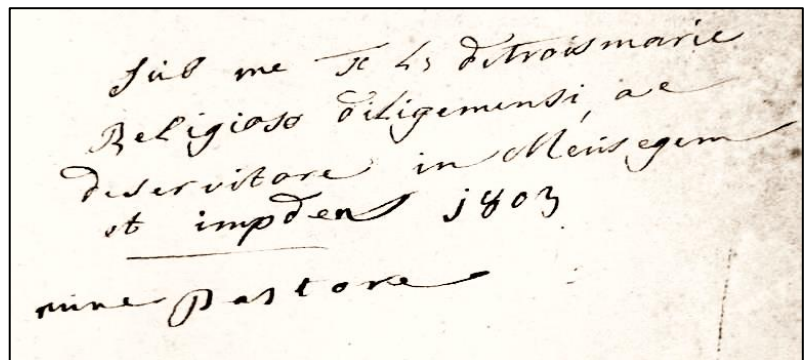 Sub me
Religioso diligemensi, ac
deservitore in Meusegem
et impden 1803
nunc Pastore